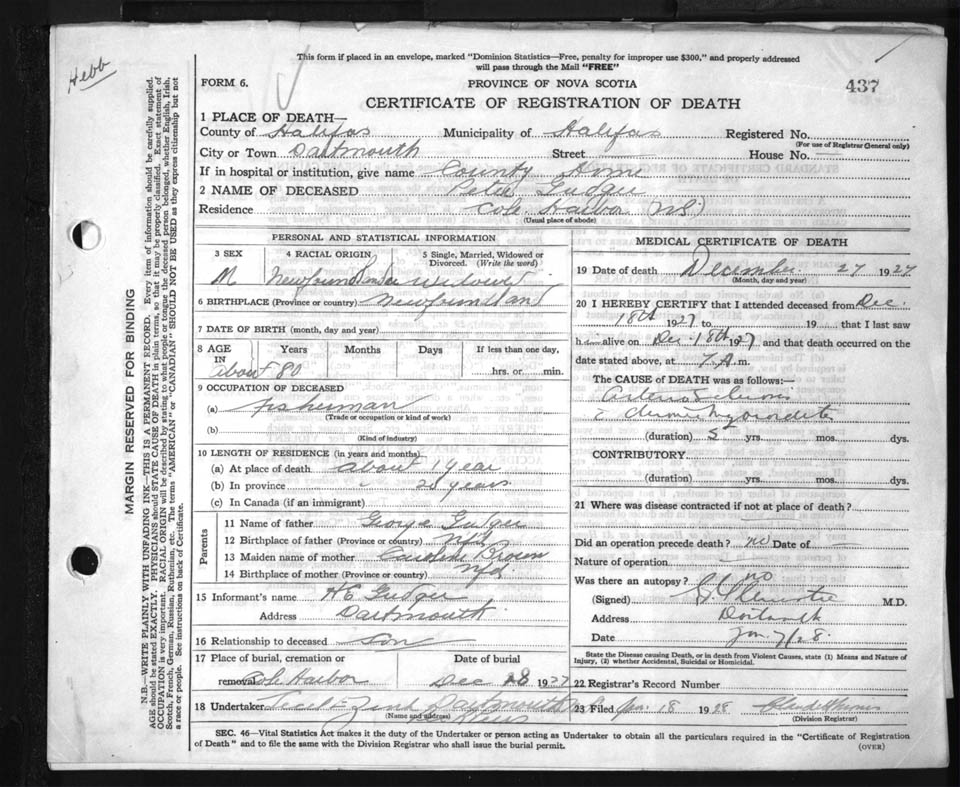 Hebb
This form if placed in an envelope, marked "Dominion Statistics—Free, penalty for improper use $300," and properly addressed
will pass through the Mail "FREE"
FORM 6.
PROVINCE OF NOVA SCOTIA
437
CERTIFICATE OF REGISTRATION OF DEATH
1 PLACE OF DEATH—
County of Halifax Municipality of Halifax Registered No.
(For use of Registrar General only)
City or Town Dartmouth Street House No.
If in hospital or institution, give name County Home
2 NAME OF DECEASED Peter Gudger
Residence Cole Harbor (NS)
(Usual place of abode)
PERSONAL AND STATISTICAL INFORMATION
3 SEX 4 RACIAL ORIGIN 5 Single, Married, Widowed or
Divorced. (Write the word)
M Newfoundlander Widower
6 BIRTHPLACE (Province or country) Newfoundland
7 DATE OF BIRTH (month, day and year)
8 AGE Years Months Days If less than one day,
IN
about 80 hrs. or min.
9 OCCUPATION OF DECEASED
(a) fisherman
(Trade or occupation or kind of work)
(b)
(Kind of industry)
10 LENGTH OF RESIDENCE (in years and months)
(a) At place of death about 1 year
(b) In province " 20 years
(c) In Canada (if an immigrant)
Parents
11 Name of father George Gudger
12 Birthplace of father (Province or country) Nfld
13 Maiden name of mother Caroline Brown
14 Birthplace of mother (Province or country) Nfd
15 Informant's name H E Gudger
Address Dartmouth
16 Relationship to deceased son
17 Place of burial, cremation or Date of burial
removal Cole Harbor Dec 28 1927
18 Undertaker Dartmouth
(Name and address)
MEDICAL CERTIFICATE OF DEATH
19 Date of death December 27 1927
(Month, day and year)
20 I HEREBY CERTIFY that I attended deceased from Dec.
18th 1927 to 19 that I last saw
h alive on Dec 18th 1927 and that death occurred on the
date stated above, at 7.A.m.
The CAUSE OF DEATH was as follows:—
Arterio Sclerosis
& chronic Myocarditis
(duration) 5 yrs. mos. dys.
CONTRIBUTORY
(duration) yrs. mos. dys.
21 Where was disease contracted if not at place of death?
Did an operation precede death? no Date of
Nature of operation
Was there an autopsy? no
(Signed) M.D.
Address Dartmouth
Date Jan 7/28.
State the Disease causing Death, or in death from Violent Causes, state (1) Means and Nature of
Injury, (2) whether Accidental, Suicidal or Homicidal.
22 Registrar's Record Number
23 Filed Jan. 18 1928
(Division Registrar)
SEC. 46—Vital Statistics Act makes it the duty of the Undertaker or person acting as Undertaker to obtain all the particulars required in the "Certificate of Registration
of Death" and to file the same with the Division Registrar who shall issue the burial permit.
(OVER)
MARGIN RESERVED FOR BINDING
N.B.—WRITE PLAINLY WITH UNFADING INK—THIS IS A PERMANENT RECORD. Every item of information should be carefully supplied.
AGE should be stated EXACTLY. PHYSICIANS should STATE CAUSE OF DEATH in plain terms, so that it may be properly classified. Exact statement of
OCCUPATION is very important. RACIAL ORIGIN will be described by stating to what people or tongue the deceased person belonged, whether English, Irish,
Scotch, French, German, Russian, Ruthenian, etc. The terms "AMERICAN" or "CANADIAN" SHOULD NOT BE USED as they express citizenship but not
a race or people. See instructions on back of Certificate.